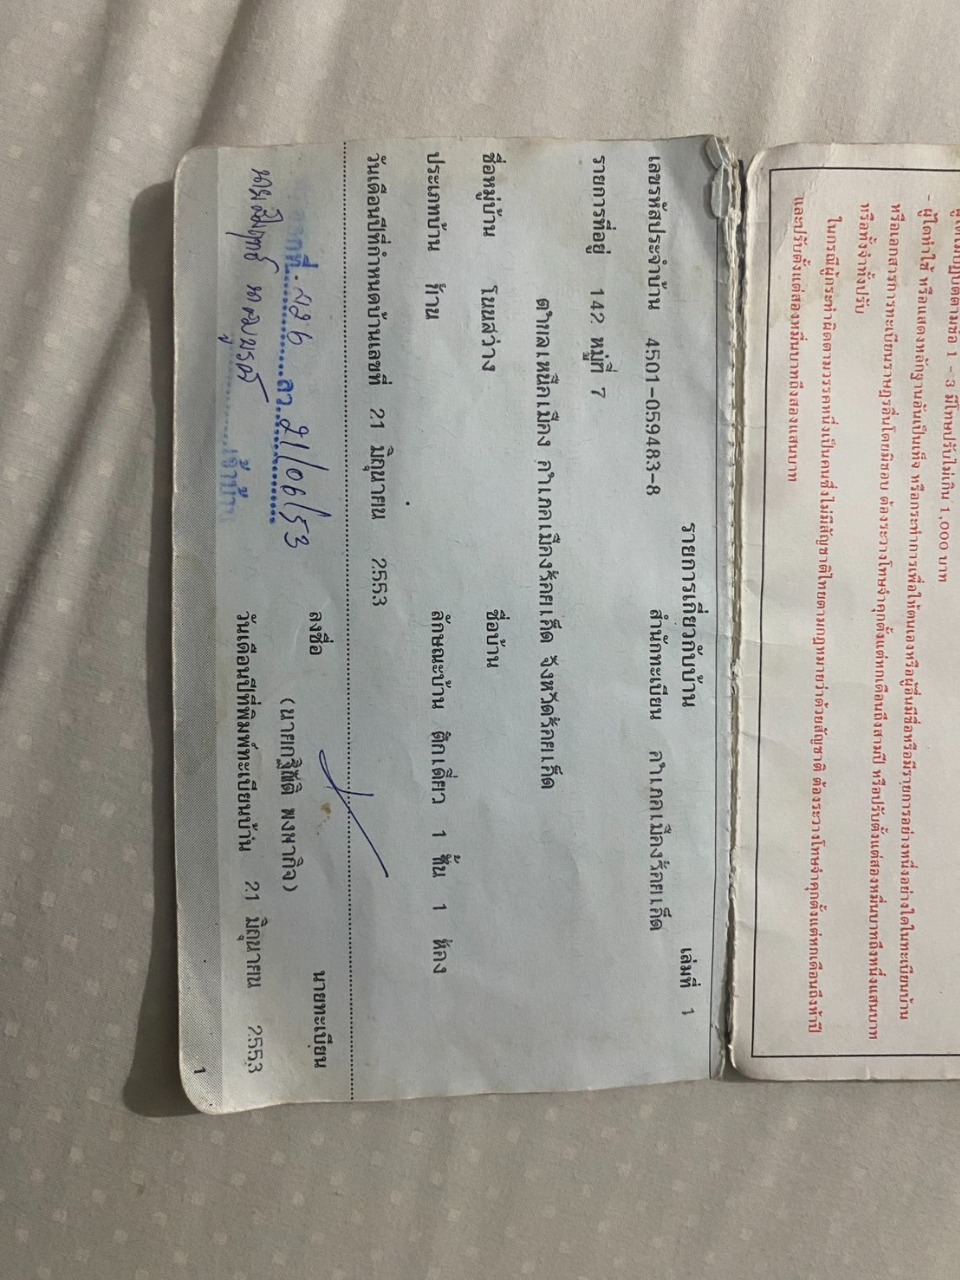 1 - 3 มีโทษปรับไม่เกิน 1,000 บาท
- ผู้ใดทำ ใช้ หรือแสดงหลักฐานอันเป็นเท็จ หรือกระทำการเพื่อให้ตนเองหรือผู้อื่นมีชื่อหรือมีรายการอย่างหนึ่งอย่างใดในทะเบียนบ้าน
หรือเอกสารการทะเบียนราษฎรอื่นโดยมิชอบ ต้องระวางโทษจำคุกตั้งแต่หกเดือนถึงสามปี หรือปรับตั้งแต่สองหมื่นบาทถึงหนึ่งแสนบาท
หรือทั้งจำทั้งปรับ
ในกรณีผู้กระทำผิดตามวรรคหนึ่งเป็นคนซึ่งไม่มีสัญชาติไทยตามกฎหมายว่าด้วยสัญชาติ ต้องระวางโทษจำคุกตั้งแต่หกเดือนถึงห้าปี
และปรับตั้งแต่สองหมื่นบาทถึงสองแสนบาท
รายการเกี่ยวกับบ้าน เล่มที่ 1
เลขรหัสประจำบ้าน 4501-059483-8 สำนักทะเบียน อำเภอเมืองร้อยเอ็ด
รายการที่อยู่ 142 หมู่ที่ 7
ตำบลเหนือเมือง อำเภอเมืองร้อยเอ็ด จังหวัดร้อยเอ็ด
ชื่อหมู่บ้าน โนนสว่าง ชื่อบ้าน
ประเภทบ้าน บ้าน ลักษณะบ้าน ตึกเดี่ยว 1 ชั้น 1 ห้อง
วันเดือนปีที่กำหนดบ้านเลขที่ 21 มิถุนายน 2553
ลงชื่อ นายทะเบียน
ลว. 21/06/53
เจ้าบ้าน
วันเดือนปีที่พิมพ์ทะเบียนบ้าน 21 มิถุนายน 2553
1